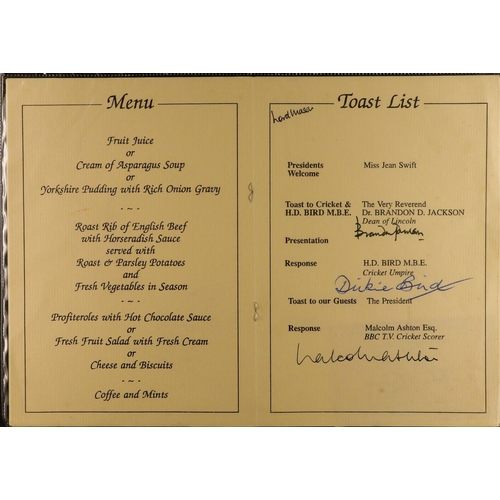 Menu
Fruit Juice
or
Cream of Asparagus Soup
or
Yorkshire Pudding with Rich Onion Gravy
- ~ -
Roast Rib of English Beef
with Horseradish Sauce
served with
Roast & Parsley Potatoes
and
Fresh Vegetables in Season
- ~ -
Profiteroles with Hot Chocolate Sauce
or
Fresh Fruit Salad with Fresh Cream
or
Cheese and Biscuits
- ~ -
Coffee and Mints
Toast List
Presidents Miss Jean Swift
Welcome
Toast to Cricket & The Very Reverend
H.D. BIRD M.B.E. Dr. BRANDON D. JACKSON
Dean of Lincoln
Brandon Jackson
Presentation
Response H.D. BIRD M.B.E.
Cricket Umpire
Dickie Bird
Toast to our Guests The President
Response Malcolm Ashton Esq.
BBC T.V. Cricket Scorer
Malcolm Ashton